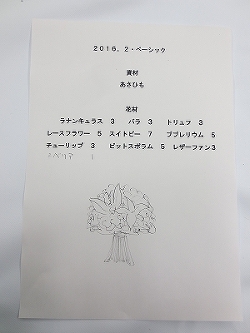 2016．2・ベーシック
資材
あさひも
花材
ラナンキュラス 3 バラ 3 トリュフ 3
レースフラワー 5 スイトピー 7 ブプレリウム 5
チューリップ 3 ピットスポラム 5 レザーファン3